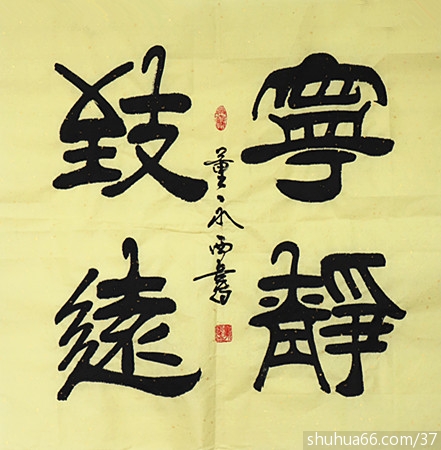 寧靜
致遠
董永西書
shuhua66.com/37